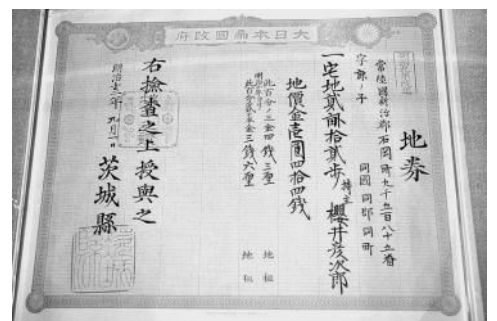 大日本帝國政府
地券
常陸國新治郡石岡町九千五百八十五番
同國同郡同町
一宅地貳畝拾貳歩 持主 櫻井彦次郎
地價金壱圓四拾四錢
此百分ノ三金四錢三厘 地租
明治十年ヨリ
此百分ノ貳ヶ半金三錢六厘 地租
右檢査之上授與之
明治十三年九月一日
茨城縣